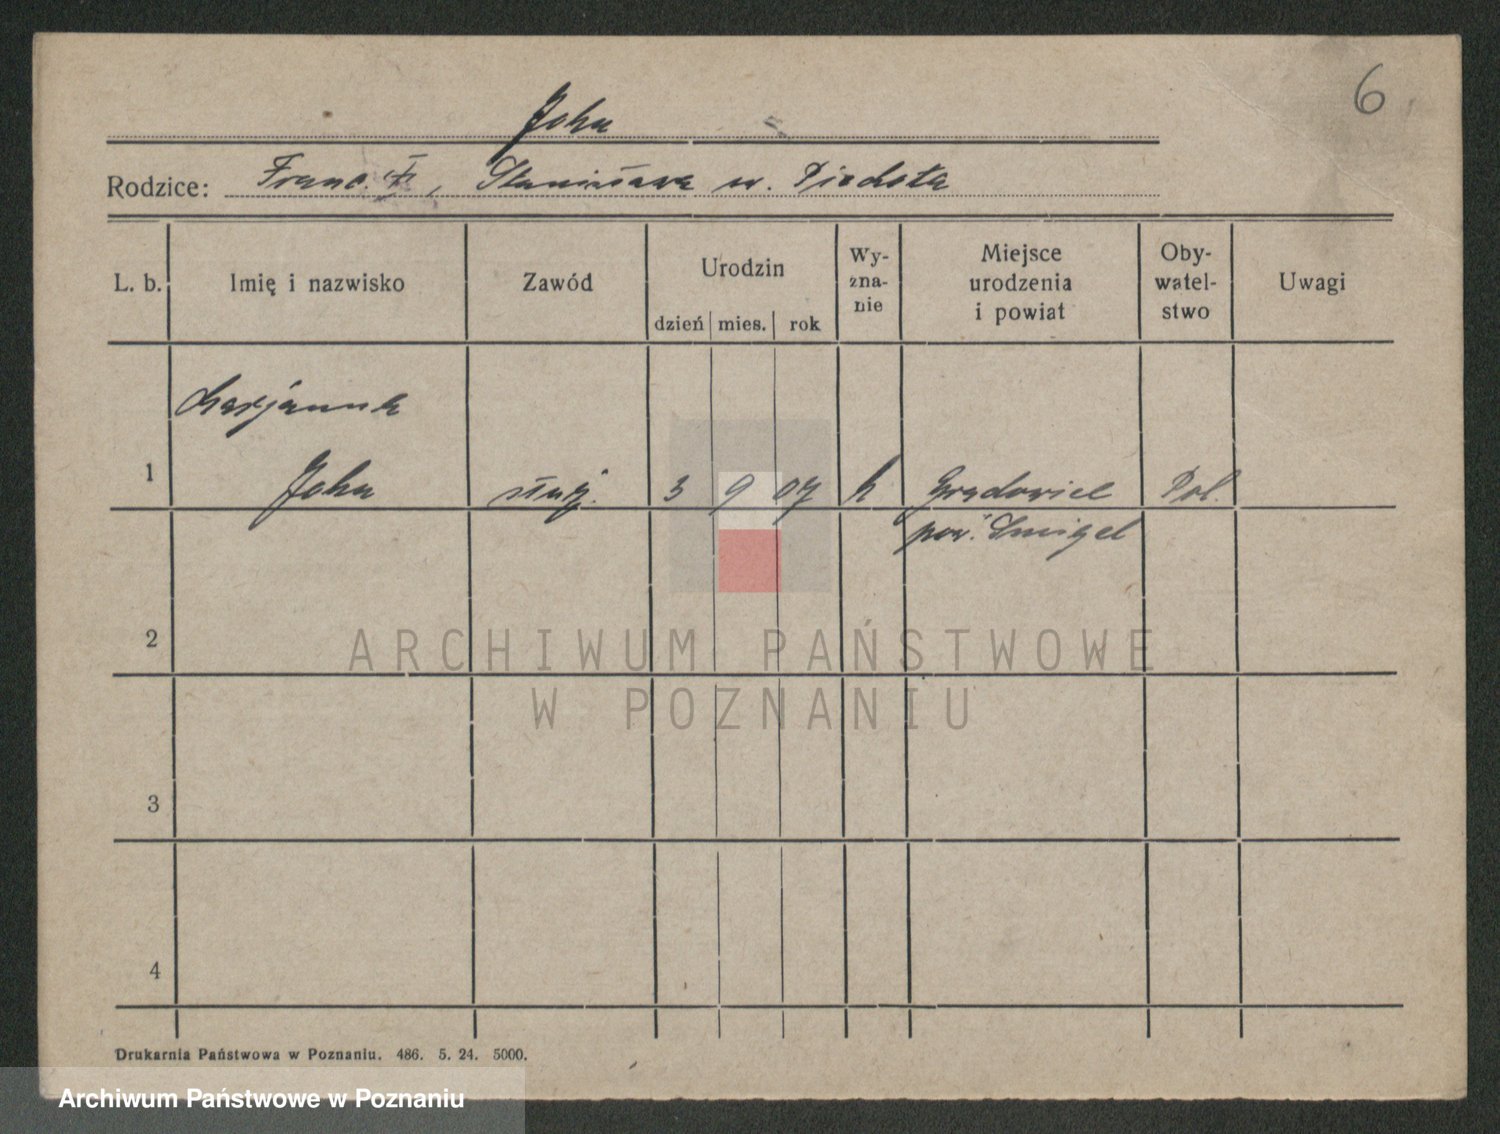 6
John
Rodzice: Franc. ✝, Stanisława ur. Piechota
L. b. Imię i nazwisko Zawód Urodzin dzień mies. rok Wy-zna-nie Miejsce urodzenia i powiat Oby-watel-stwo Uwagi
Marjanna
1 John służ. 3 9 07 k Gradowice Pol.
pow. Śmigel
2
3
4
ARCHIWUM PAŃSTWOWE
W POZNANIU
Drukarnia Państwowa w Poznaniu. 486. 5. 24. 5000.
Archiwum Państwowe w Poznaniu